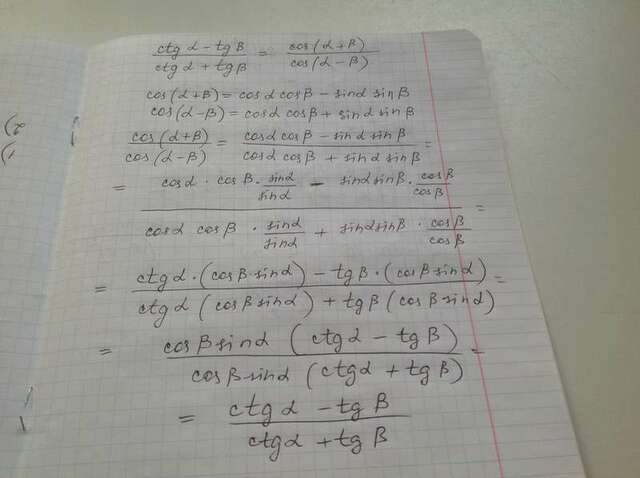 (ctg α - tg β)/(ctg α + tg β) = cos(α+β)/cos(α-β)
cos(α+β) = cos α cos β - sin α sin β
cos(α-β) = cos α cos β + sin α sin β
cos(α+β)/cos(α-β) = (cos α cos β - sin α sin β)/(cos α cos β + sin α sin β) =
= (cos α · cos β · sin α/sin α - sin α sin β · cos β/cos β)/(cos α cos β · sin α/sin α + sin α sin β · cos β/cos β) =
= (ctg α · (cos β · sin α) - tg β · (cos β sin α))/(ctg α (cos β sin α) + tg β (cos β sin α)) =
= (cos β sin α (ctg α - tg β))/(cos β sin α (ctg α + tg β)) =
= (ctg α - tg β)/(ctg α + tg β)